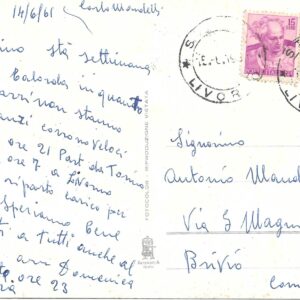 14/6/61 Carlo Mandelli
ino stà settimana
balorda in quanto
arri non stanno
anzi corrono veloci
ore 21 Part da Torino
ore 7 a Livorno
riparto carico per
Speriamo bene
i a tutti anche al
arr Domenica
ore 23
FOTOCOLOR RIPRODUZIONE VIETATA
15
LIVOR
Signorino
Antonio Mand
Via S Magn
Brivio
Com